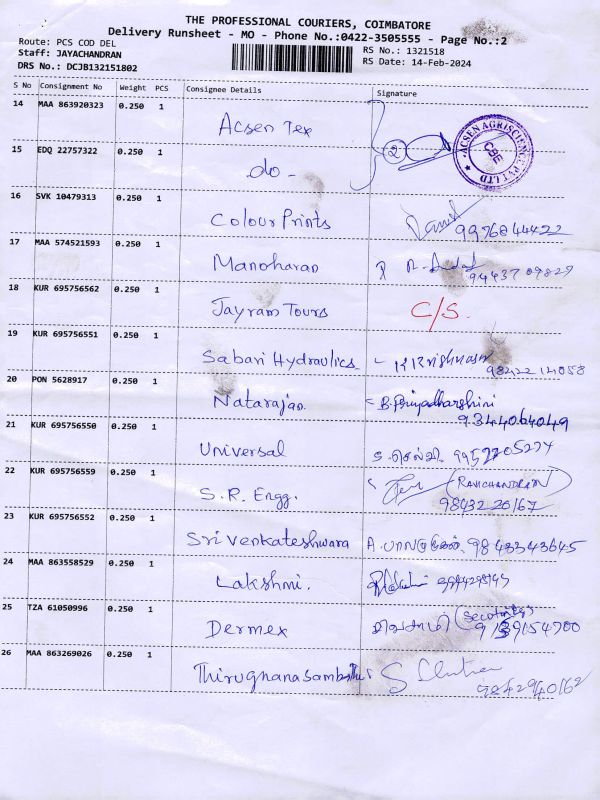 THE PROFESSIONAL COURIERS, COIMBATORE
Delivery Runsheet - MO - Phone No.:0422-3505555 - Page No.:2
Route: PCS COD DEL
RS No.: 1321518
Staff: JAYACHANDRAN
RS Date: 14-Feb-2024
DRS No.: DCJB132151802
S No Consignment No Weight PCS Consignee Details Signature
14 MAA 863920323 0.250 1 Acsen Tex 2
ACSEN AGRISCIENCE PVT LTD
CBE
15 EDQ 22757322 0.250 1 -do-
16 SVK 10479313 0.250 1 Colour Prints 9976844422
17 MAA 574521593 0.250 1 Manoharan 9443709827
18 KUR 695756562 0.250 1 Jayram Tours C/S.
19 KUR 695756551 0.250 1 Sabari Hydraulics
20 PON 5628917 0.250 1 Natarajan B. Priyadharshini
9344064049
21 KUR 695756550 0.250 1 Universal
22 KUR 695756559 0.250 1 S.R. Engg. (RAVICHANDRAN)
98432 20167
23 KUR 695756552 0.250 1 Sri Venkateshwara 9843343645
24 MAA 863558529 0.250 1 Lakshmi.
25 TZA 61050996 0.250 1 Dermex
26 MAA 863269026 0.250 1